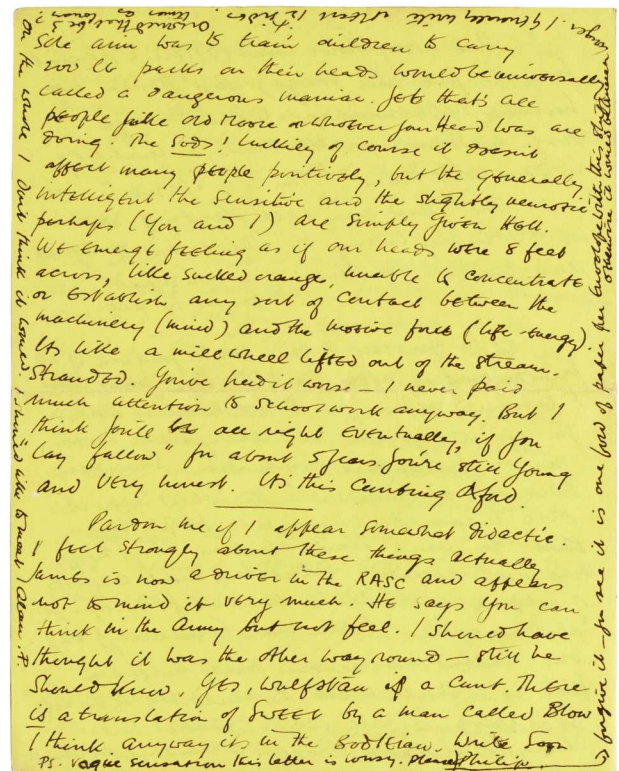 sole aim was to train children to carry
200 lb packs on their heads would be universally
called a dangerous maniac. Yet that's all
people like old Moore or whoever your Head was are
doing. The Sods! Luckily of course it doesn't
affect many people positively, but the generally
intelligent the sensitive and the slightly neurotic
perhaps (you and I) are simply given Hell.
We emerge feeling as if our heads were 8 feet
across, like sucked oranges, unable to concentrate
or establish any sort of contact between the
machinery (mind) and the motive force (life-energy).
Its like a mill wheel lifted out of the stream.
Stranded. You've had it worse — I never paid
much attention to school work anyway. But I
think you'll be all right eventually, if you
"lay fallow" for about 5 years you're still young
and very honest. Its this
Pardon me if I appear somewhat didactic.
I feel strongly about these things actually
is now a driver in the RASC and appears
not to mind it very much. He says you can
think in the Army but not feel. I should have
thought it was the other way round — still he
should know. Yes, Wulfstan is a cunt. There
is a translation of Sweet by a man called Blow
I think. Anyway its in the Bodleian. Write Soon
Philip.
Ps. Vague sensation this letter is lousy. please
forgive it — you see it is one form of paper per envelope with this
On the whole I don't think it
I should like to meet Alan. P.
longer. I generally write at least 12 sides.